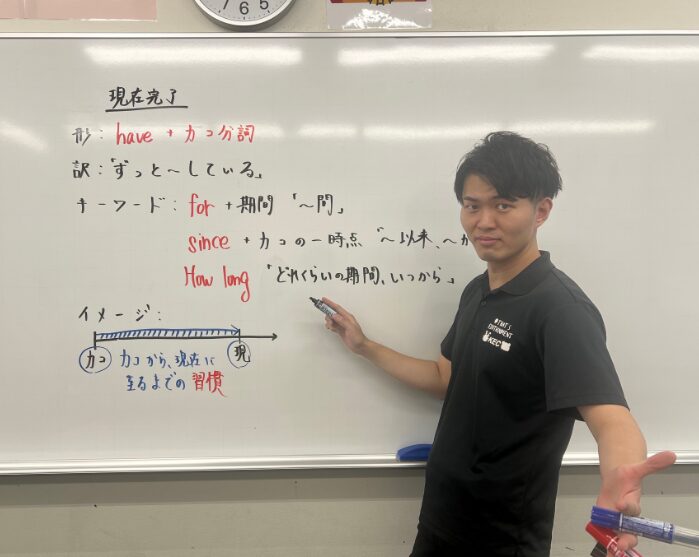 7 6 5
現在完了
形：have + カコ分詞
訳：「ずっと〜している」
キーワード：for + 期間「〜間」
since + カコの一時点「〜以来、〜か
How long「どれくらいの期間、いつから」
イメージ：
カコ
現
カコから、現在に
至るまでの習慣
KEC